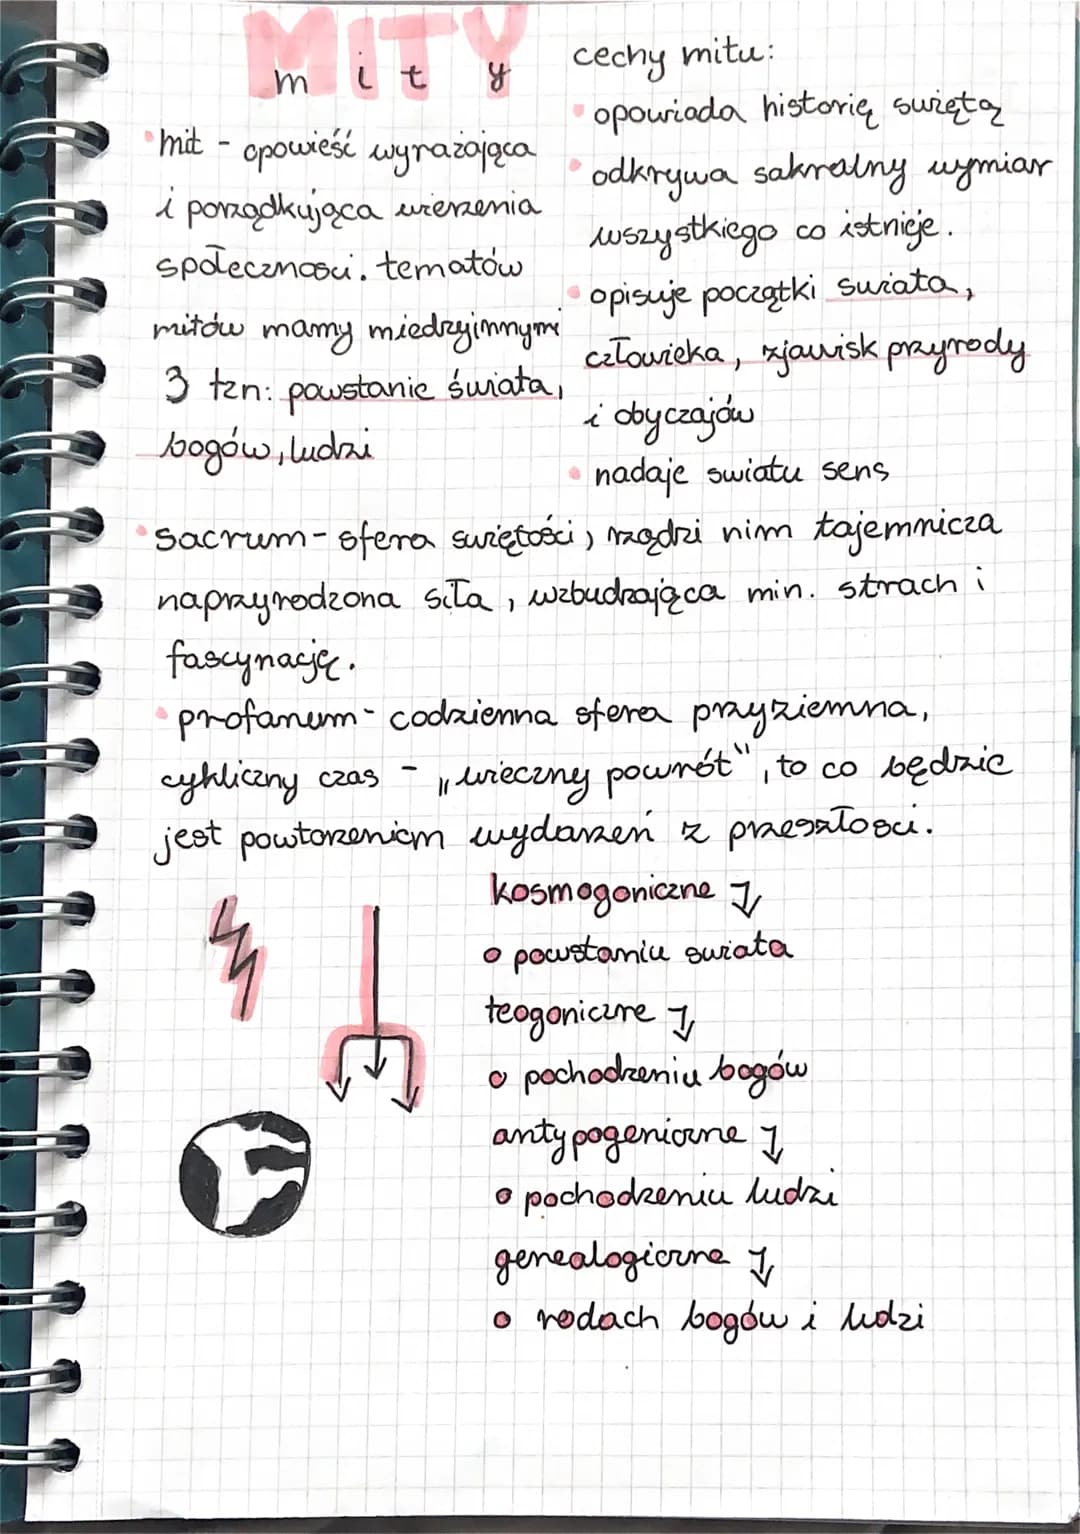 MITY
m i t y
•mit - opowieść wyrażająca
i porządkująca wierzenia
społeczności. tematów
mitów mamy miedzyinnymi
3 tzn: powstanie świata,
bogów, ludzi
cechy mitu:
• opowiada historię swiętą
• odkrywa sakralny wymiar
wszystkiego co istnieje.
• opisuje początki swiata,
człowieka, zjawisk przyrody
i obyczajów
• nadaje swiatu sens
•sacrum - sfera swiętości, rządzi nim tajemnicza
naprzyrodzona siła, wzbudzająca min. strach i
fascynację.
• profanum - codzienna sfera przyziemna,
cykliczny czas - „wieczny powrót", to co będzie
jest powtorzeniem wydarzeń z przeszłosci.
kosmogoniczne
o powstaniu swiata
teogoniczne
o pochodzeniu bogów
antypogeniczne
o pochodzeniu ludzi
genealogiczne
o rodach bogów i ludzi